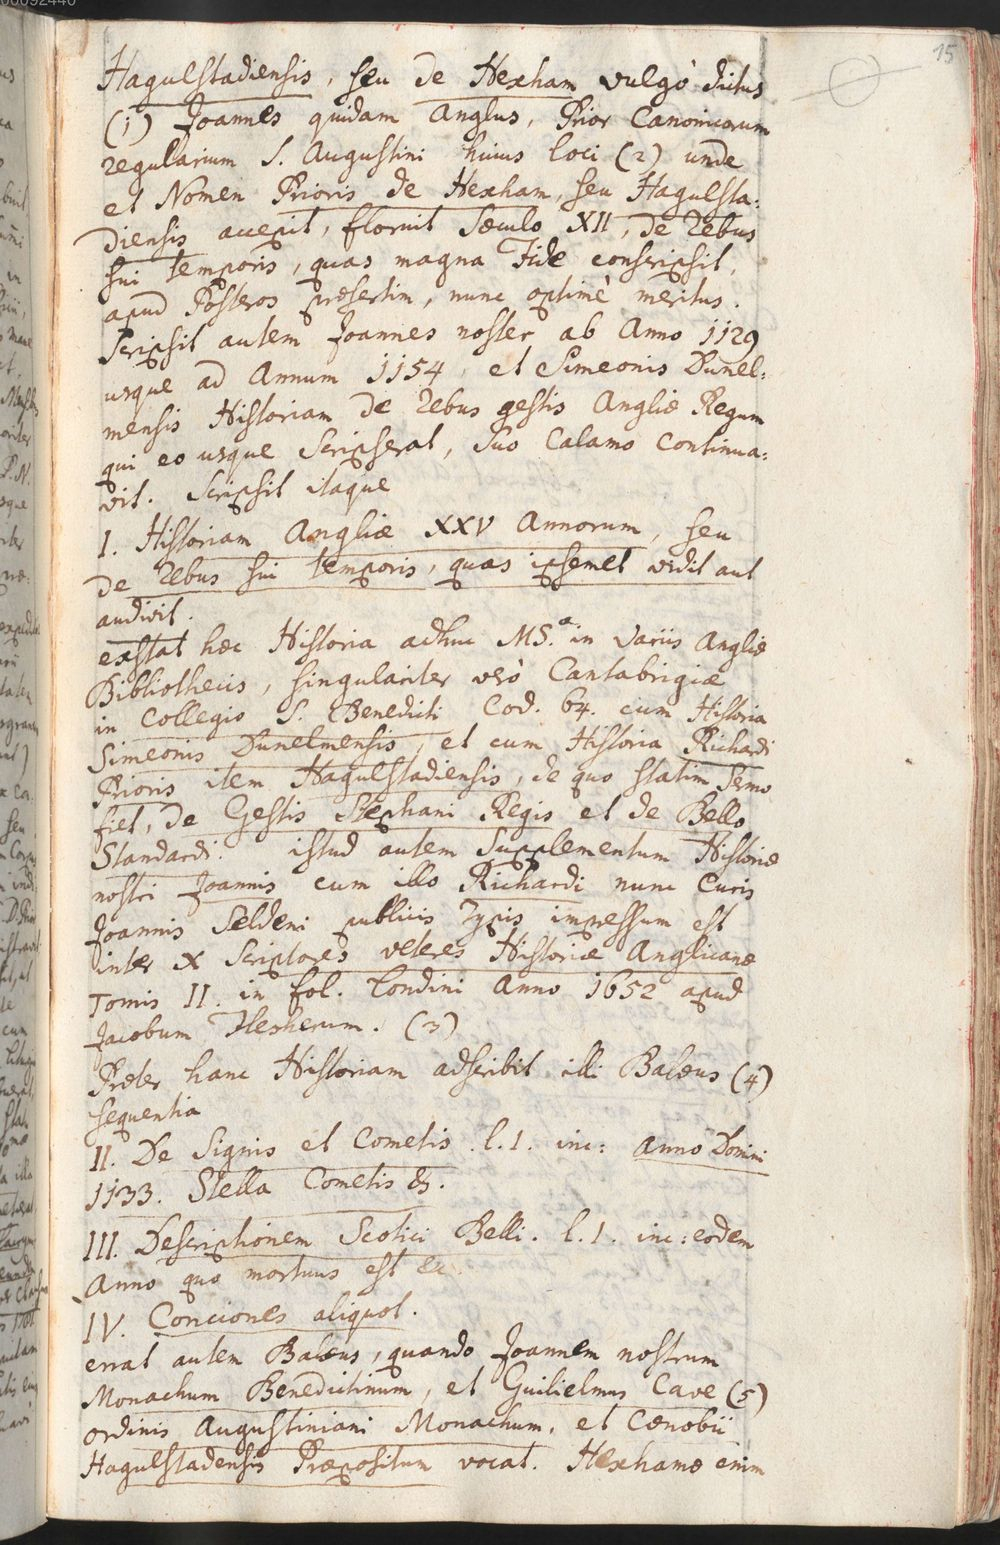 00092440
15
Hagulstadiensis, seu de Hexham vulgò dictus
(1) Joannes quidam Anglus, Prior Canonicorum
regularium S. Augustini huius loci (2) unde
et Nomen Prioris de Hexham, seu Hagulsta:
diensis accepit, floruit sæculo XII, de rebus
sui temporis, quas magna Fide conscripsit,
apud Posteros præsertim, nunc optimè meritus.
Scripsit autem Joannes noster ab Anno 1129
usque ad Annum 1154, et Simeonis Dunel:
mensis Historiam de rebus gestis Angliæ Regum
qui eo usque scripserat, suo Calamo continua:
vit. Scripsit itaque
I. Historiam Angliæ XXV Annorum, seu
de rebus sui temporis, quas ipsemet vidit aut
audivit.
exstat hæc Historia adhuc MS.a in variis Angliæ
Bibliothecis, singulariter verò Cantabrigiæ
in Collegio S. Benedicti Cod. 64. cum Historia
Simeonis Dunelmensis, et cum Historia Richardi
Prioris item Hagulstadiensis, de quo statim sermo
fiet, de Gestis Stephani Regis et de Bello
Standardi. istud autem supplementum Historiæ
nostri Joannis cum illo Richardi nunc Curis
Joannis Seldeni publicis Typis impressum est
inter X Scriptores veteres Historiæ Anglicanæ
Tomis II. in fol. Londini Anno 1652 apud
Jacobum Flesherum. (3)
Præter hanc Historiam adscribit illi Balæus (4)
sequentia
II. De Signis et Cometis. l.1. inc: Anno Domini
1133. Stella Cometis &.
III. Descriptionem Scotici Belli. l.1. inc: eodem
Anno quo mortuus est &c.
IV. Conciones aliquot.
errat autem Balæus, quando Joannem nostrum
Monachum Benedictinum, et Guilielmus Cave (5)
ordinis Augustiniani Monachum, et Cœnobii
Hagulstadensis Præpositum vocat. Hexhamo enim